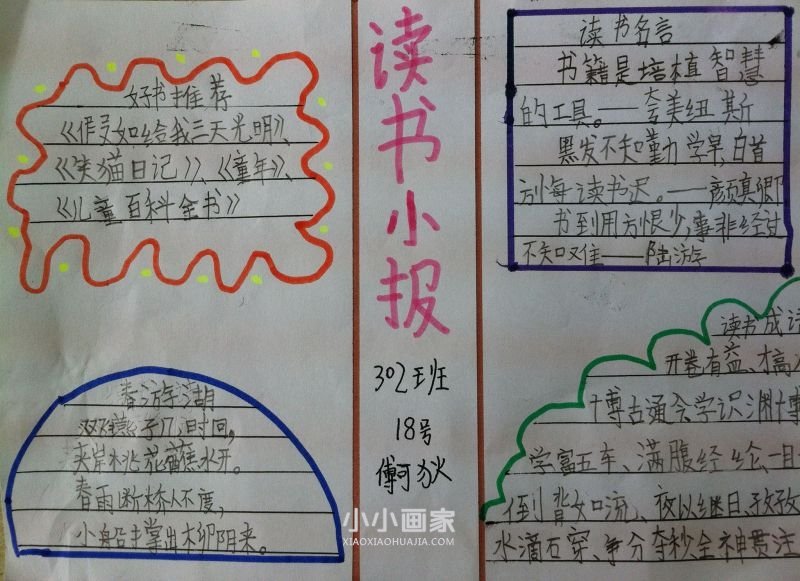 好书推荐
《假如给我三天光明》、
《笑猫日记》、《童年》、
《儿童百科全书》
春游湖
双燕子几时回，
夹岸桃花蘸水开。
春雨断桥人不度，
小船撑出柳阴来。
读书小报
302班
18号
傅
读书名言
书籍是培植智慧
的工具。——夸美纽斯
黑发不知勤学早,白首
方悔读书迟。——颜真卿
书到用方恨少,事非经过
不知难——陆游
读书成语
开卷有益、才高
博古通今学识渊博
学富五车、满腹经纶、一目
倒背如流、夜以继日、孜孜
水滴石穿、争分夺秒全神贯注
小小画家
XIAOXIAOHUAJIA.COM